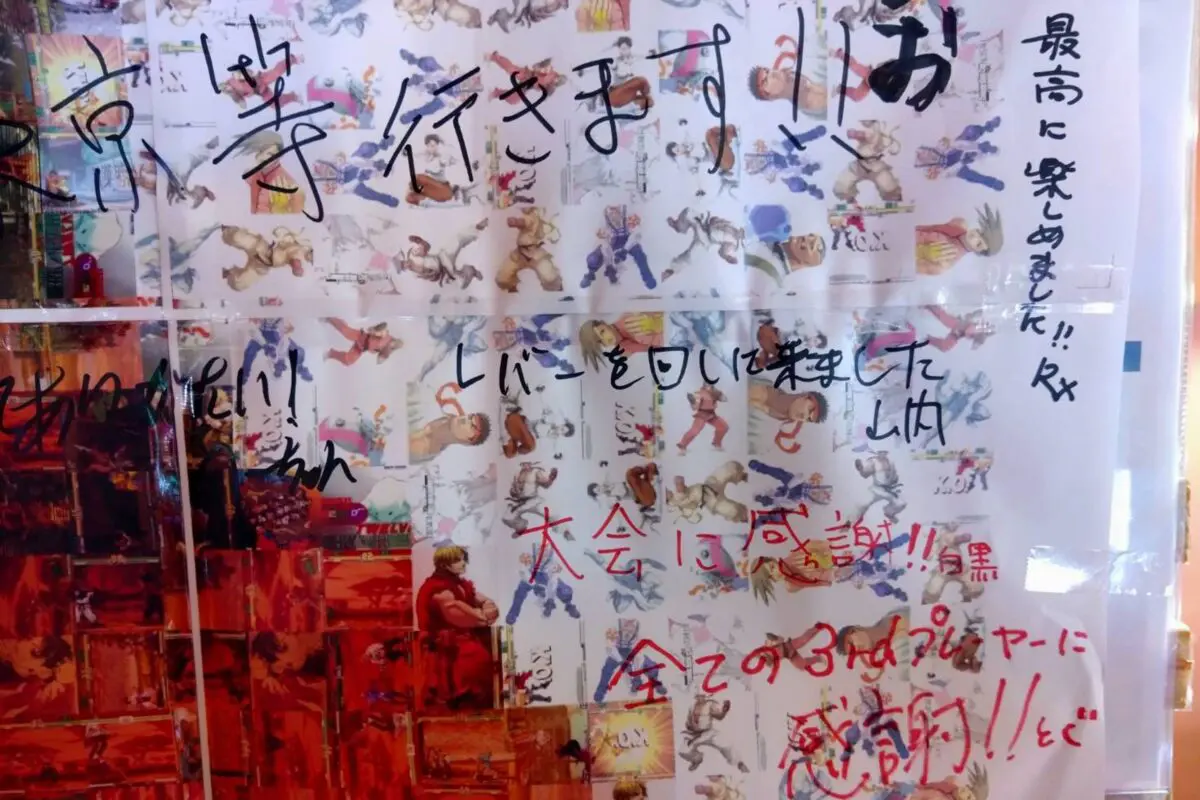 京等行きます!!! お
最高に楽しめました!! Rx
レバーを回しに来ました
山内
ありがたい!
ちゃん
大会に感謝!! 白黒
全ての3rdプレイヤーに
感謝!! とど
K.O.
TWELVE